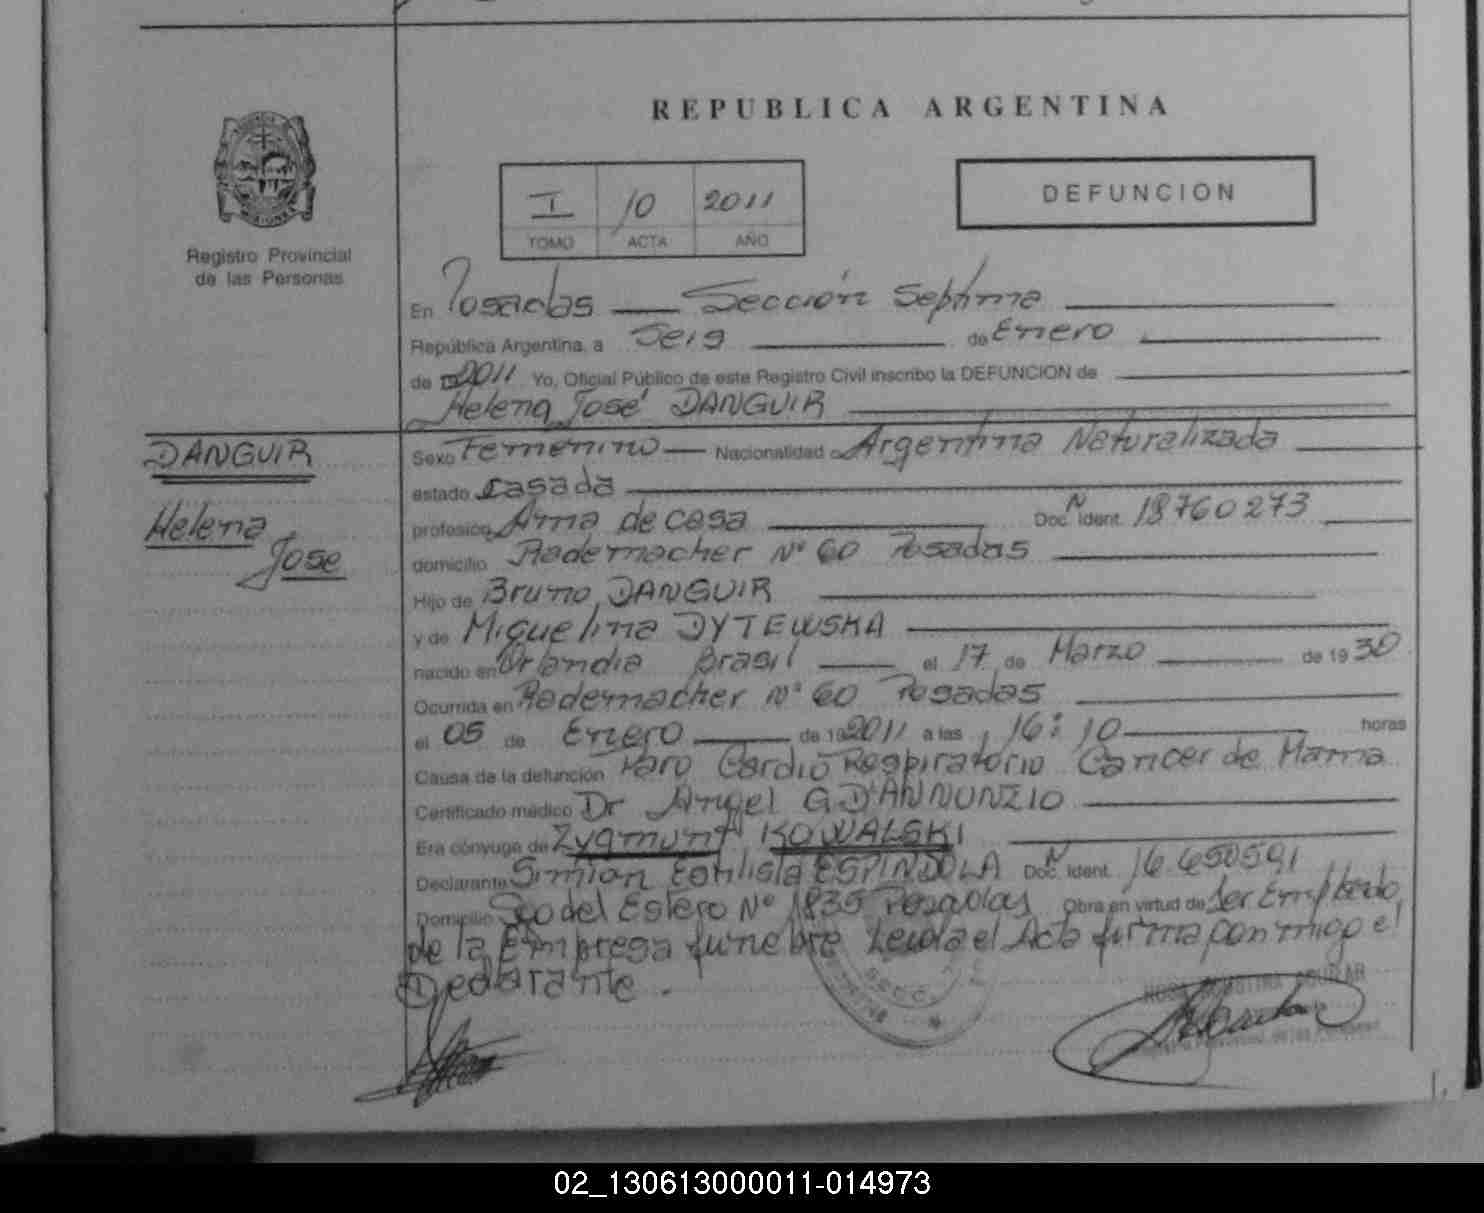 REPUBLICA ARGENTINA
I 10 2011
TOMO ACTA AÑO
DEFUNCION
Registro Provincial
de las Personas
En Posadas — Sección Septima
República Argentina, a Seis de Enero
de 2011 Yo, Oficial Público de este Registro Civil inscribo la DEFUNCION de
Helena José DANGUIR
DANGUIR
Helena
Jose
Sexo Femenino — Nacionalidad Argentina Naturalizada
estado casada
profesión Ama de casa Doc. N Ident. 18760273
domicilio Rademacher N° 60 Posadas
Hijo de Bruno DANGUIR
y de Miguelina DYTEWSKA
nacido en Orlandia Brasil el 17 de Marzo de 1930
Ocurrida en Rademacher N° 60 Posadas
el 05 de Enero de 192011 a las 16:10 horas
Causa de la defunción Paro Cardio Respiratorio Cancer de Mama
Certificado médico Dr Angel G D'ANNUNZIO
Era cónyuge de Zygmunt KOWALSKI
Declarante Simion ESPINDOLA Doc. N Ident. 16.650591
Domicilio Sgo del Estero N° 1835 Posadas Obra en virtud de Ser Empleado
de la Empresa funebre Leida el Acta firma conmigo el
Declarante.
02_130613000011-014973